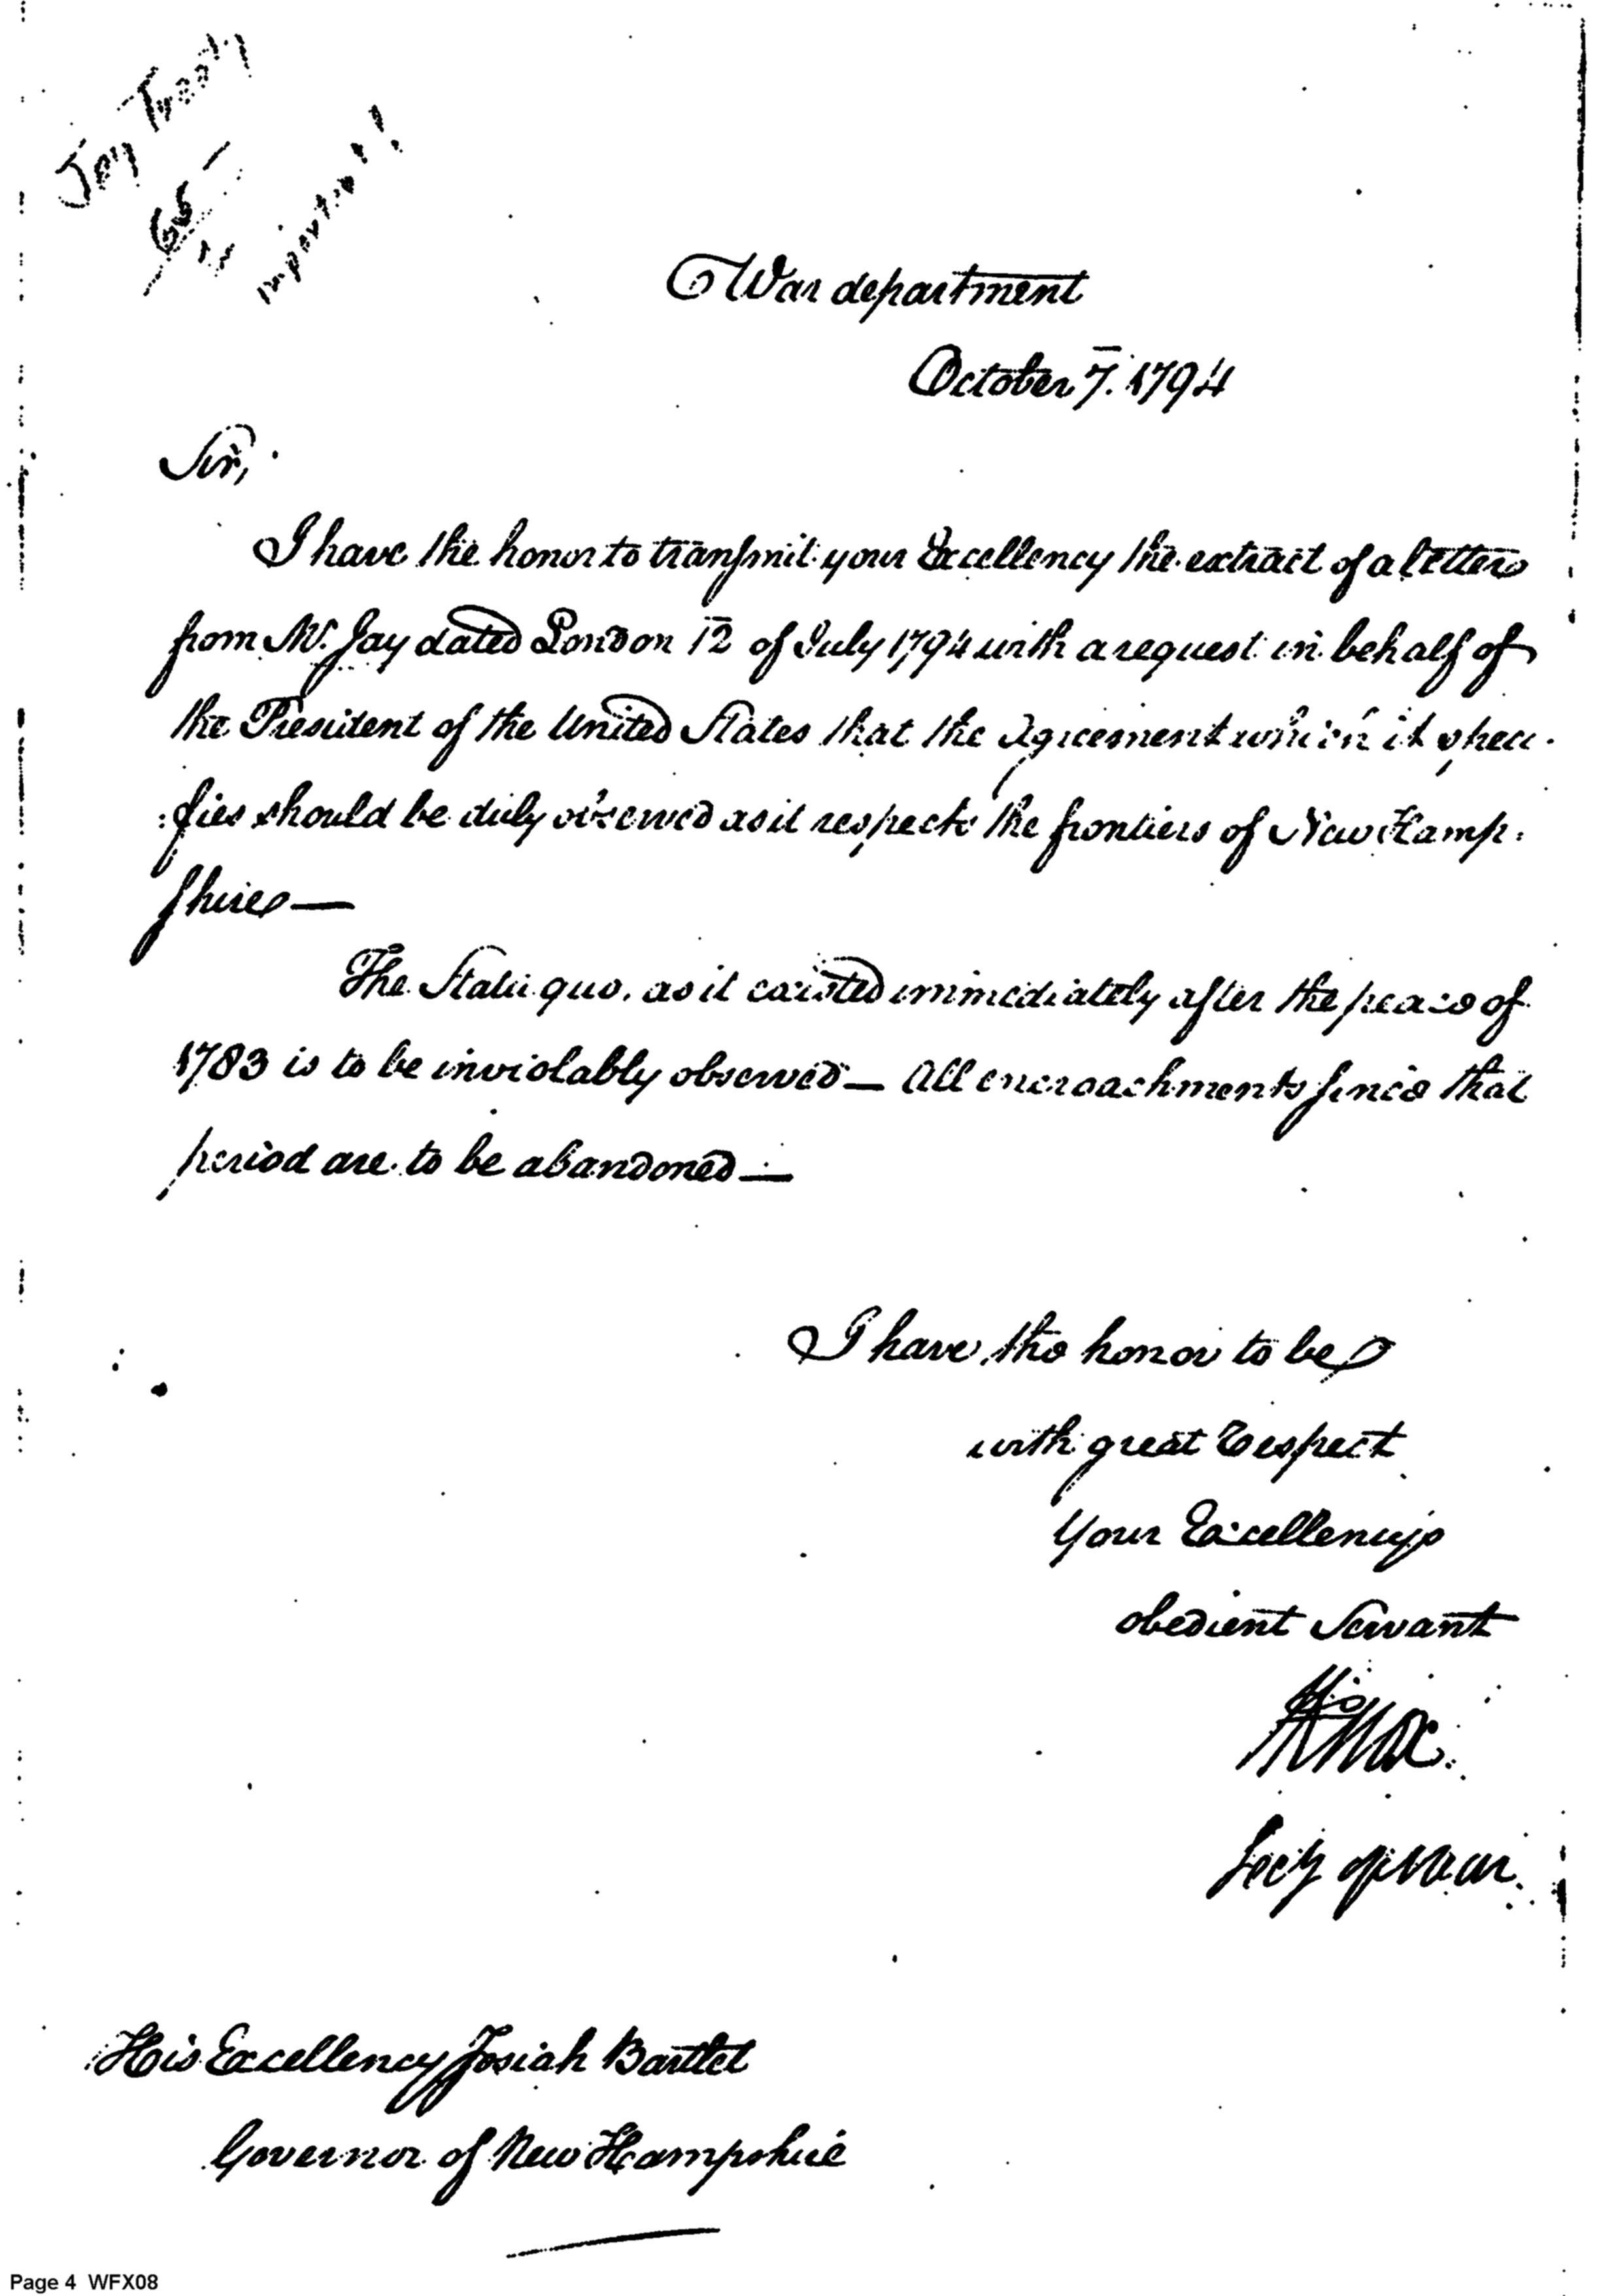 Jay Treaty
important!
War department
October 7. 1794
Sir,
I have the honor to transmit your Excellency the extract of a letter
from Mr. Jay dated London 12 of July 1794 with a request in behalf of
the President of the United States that the Agreement which it speci-
:fies should be duly observed as it respects the frontiers of New Hamp:
shire —
The Statu quo. as it existed immediately after the peace of
1783 is to be inviolably observed — All encroachments since that
period are to be abandoned —
I have the honor to be
with great Respect
Your Excellencys
obedient Servant
HKnox
Secy of War.
His Excellency Josiah Bartlet
Governor of New Hampshire
Page 4 WFX08